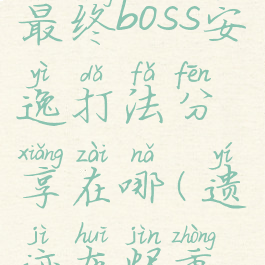 最终boss安
yì dǎ fǎ fēn
逸打法分
xiǎng zài nǎ yí
享在哪(遗
jì huī jìn zhòng
迹灰烬重